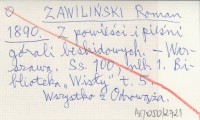 ZAWILIŃSKI Roman
1890. Z powieści i pieśni
górali beskidowych. – War-
szawa. Ss. 100, nlb 1. Bi-
blioteka „Wisły” t. 5.
Wszystko z Odrowąża.